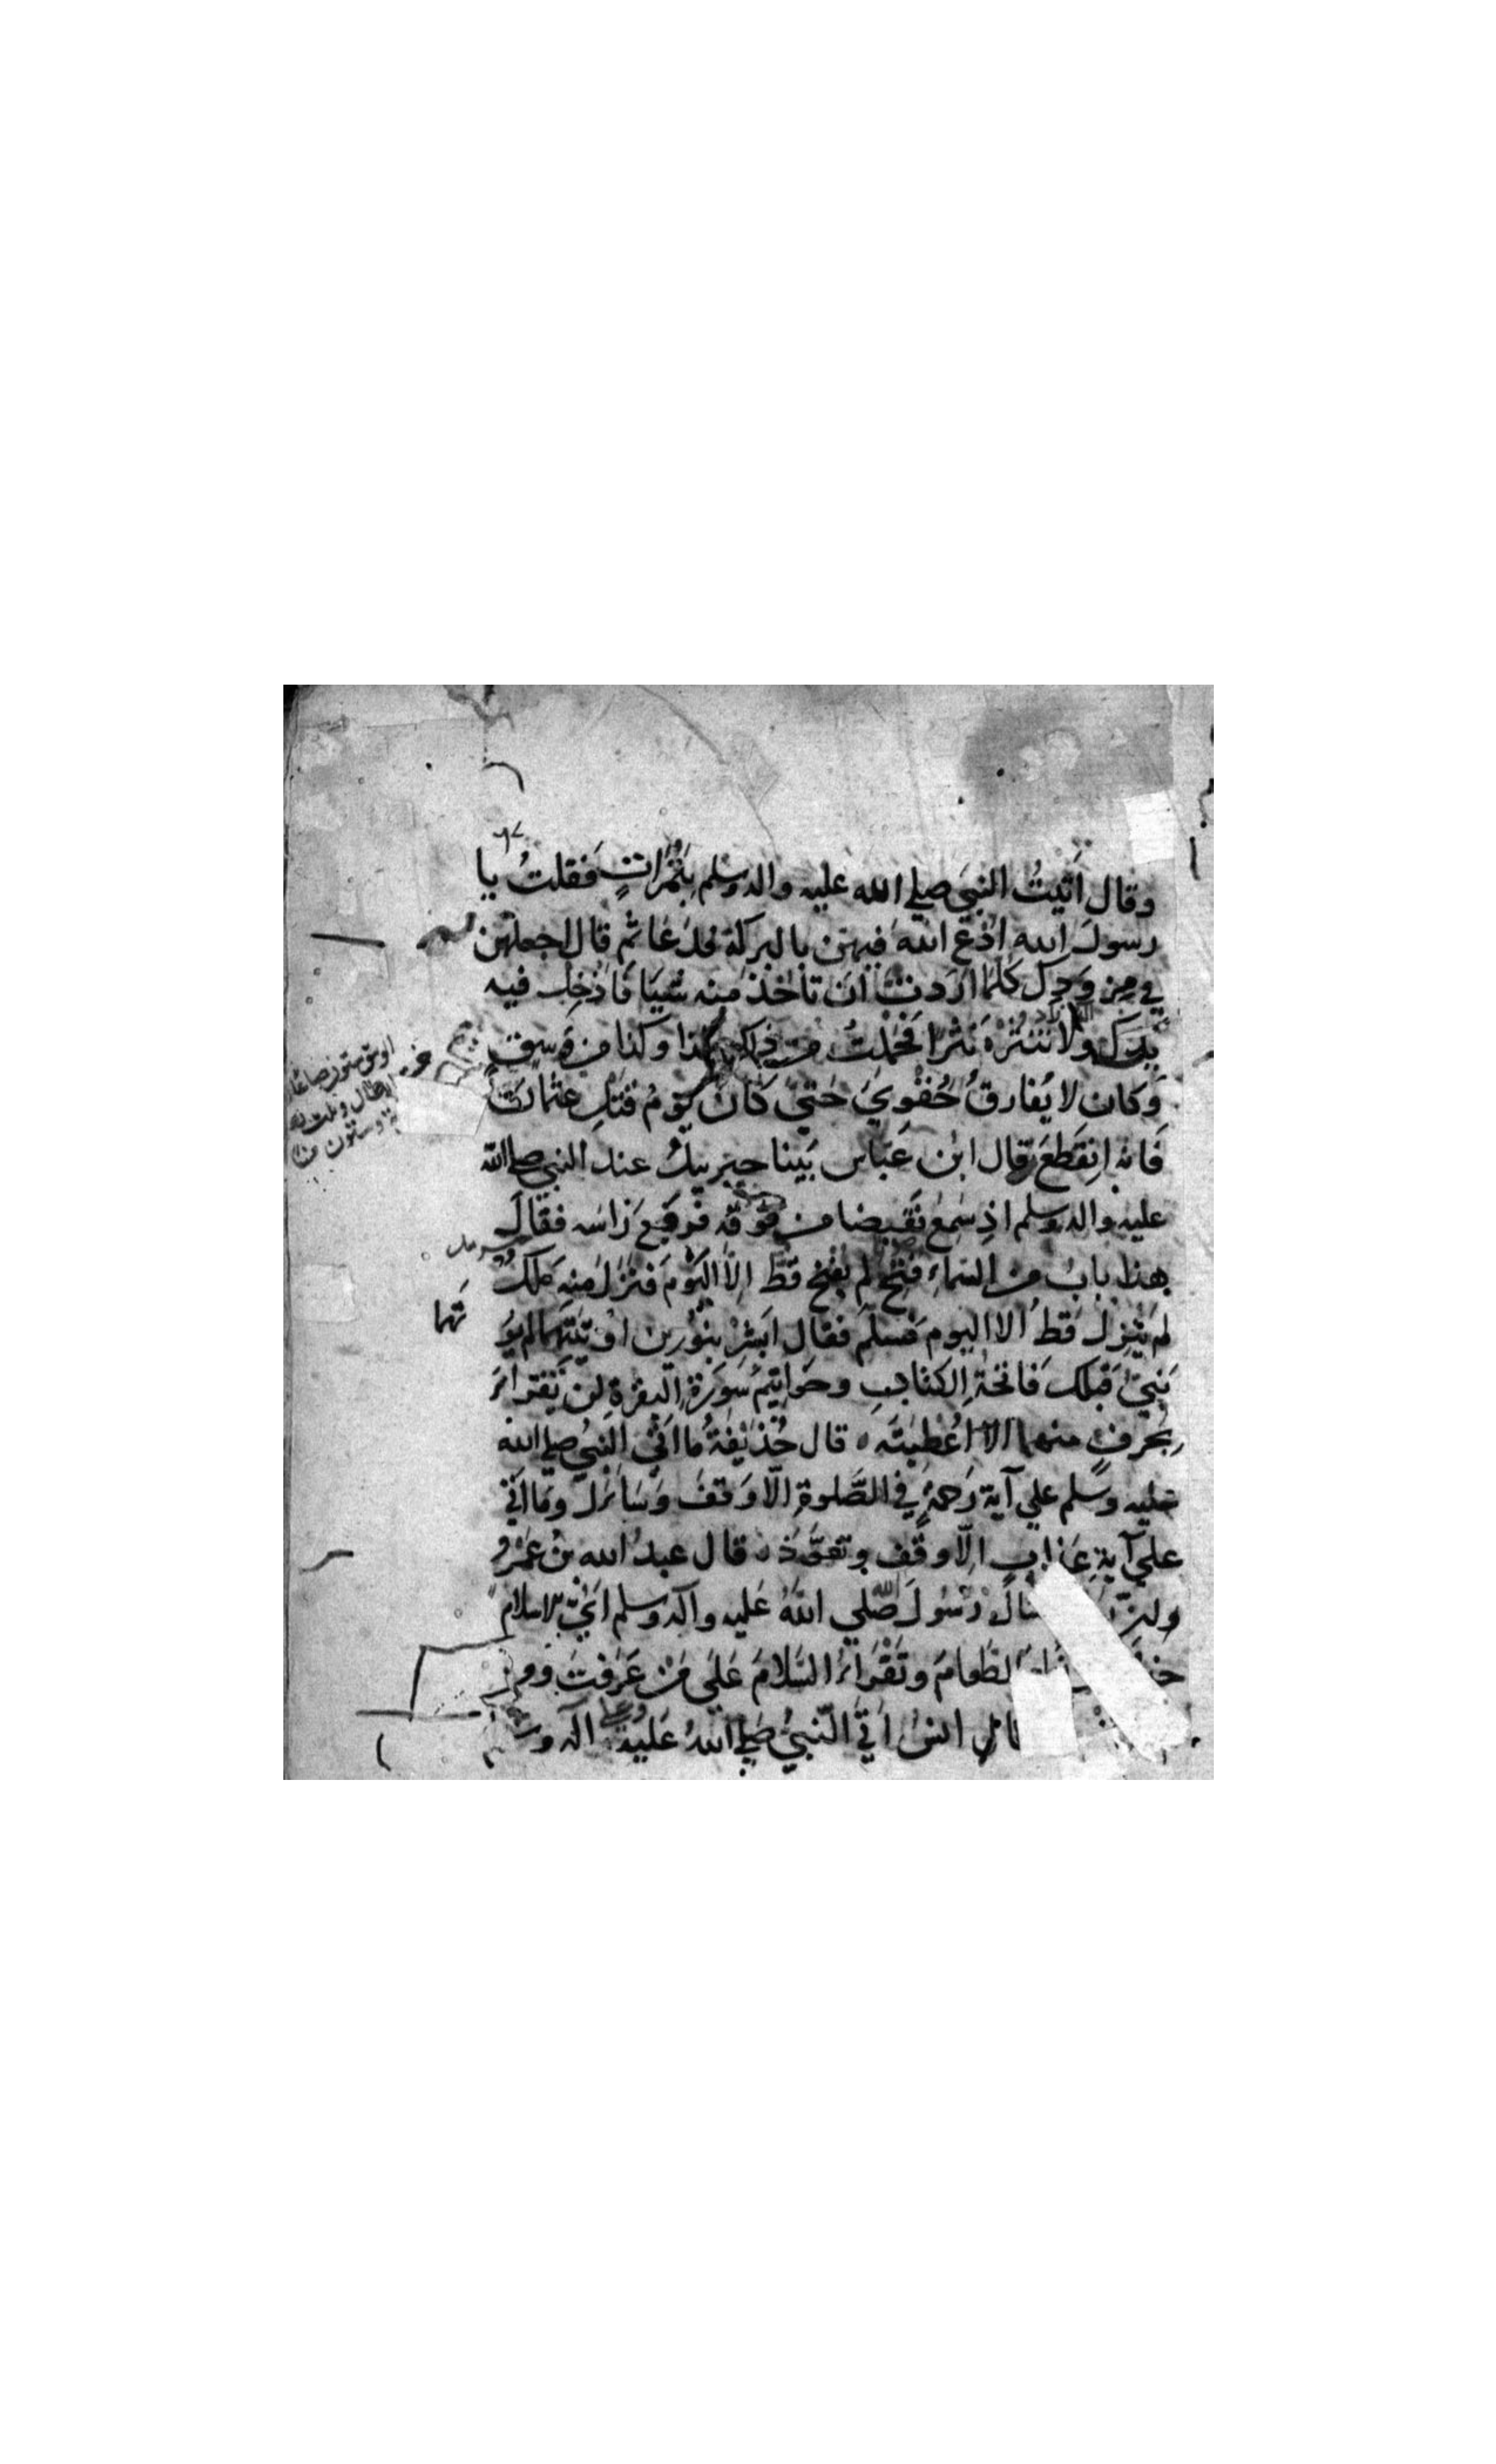 وقال اَتَيتُ النبيَ صلي الله عليه واله وسلم بِتَمَراتٍ فَقلتُ يا
رسولَ الله ادْعُ اللهَ فيهن بالبركة فدَعَا ثم قال اجعلهن
في مِزوَدِك كلما اردتَ ان تأخذ منه شيا فَاَدْخِل فيه
يدك ولا تنثره نَثْرًا فحملتُ من ذلك كذا وكذا من وَسقٍ
وَكان لا يُفارقُ حَقْوِيَ حَتيَ كَانَ يَومُ قَتْلِ عثمانَ
فَانه انقَطَعَ وقال ابن عَبّاس بَينا جبرييل عند النبي صلي الله
عليه واله وسلم اذ سَمِعَ نَقيضا من فوقه فرفع رَاسَه فقالَ
هذا بابٌ من السماء فُتِحَ لم يفتح قَطّ اِلاّ اليَومَ فَنَزَلَ منه مَلَكٌ
لم يَنزِلْ قَطُ الا اليوم فسلّمَ فقال اَبشِرْ بنُورين اوتيتَهما لم يؤ
تهما
نبيٌ قبلك فَاتحَةِ الكتابِ وخَوَاتِيمُ سُورَةِ البقرةِ لن تَقْرَاَ
بحَرفٍ منهما الاّ اُعْطِيتَه قال حُذَيْفَةُ ما اَتَى النبيُ صلي الله
عليه وسلم علي آية رَحمةٍ في الصَّلوةِ الّا وَقَفَ وَسَاَلَ وَما اتي
علي آيةِ عَذابٍ الّا وقَف وتعوَّذ قال عبدُ الله بنُ عَمْرٍو
سالَ رَسُولَ الله صلي اللهُ عَليه وآله وسلم اَيُّ الاسلام
الطَعامَ وتَقْرَاُ السَلامَ عَلَي مَنْ عَرَفتَ وَمن
قال انس اَتَي النّبيُ صلي اللهُ عَليه وعلي آله وسلم